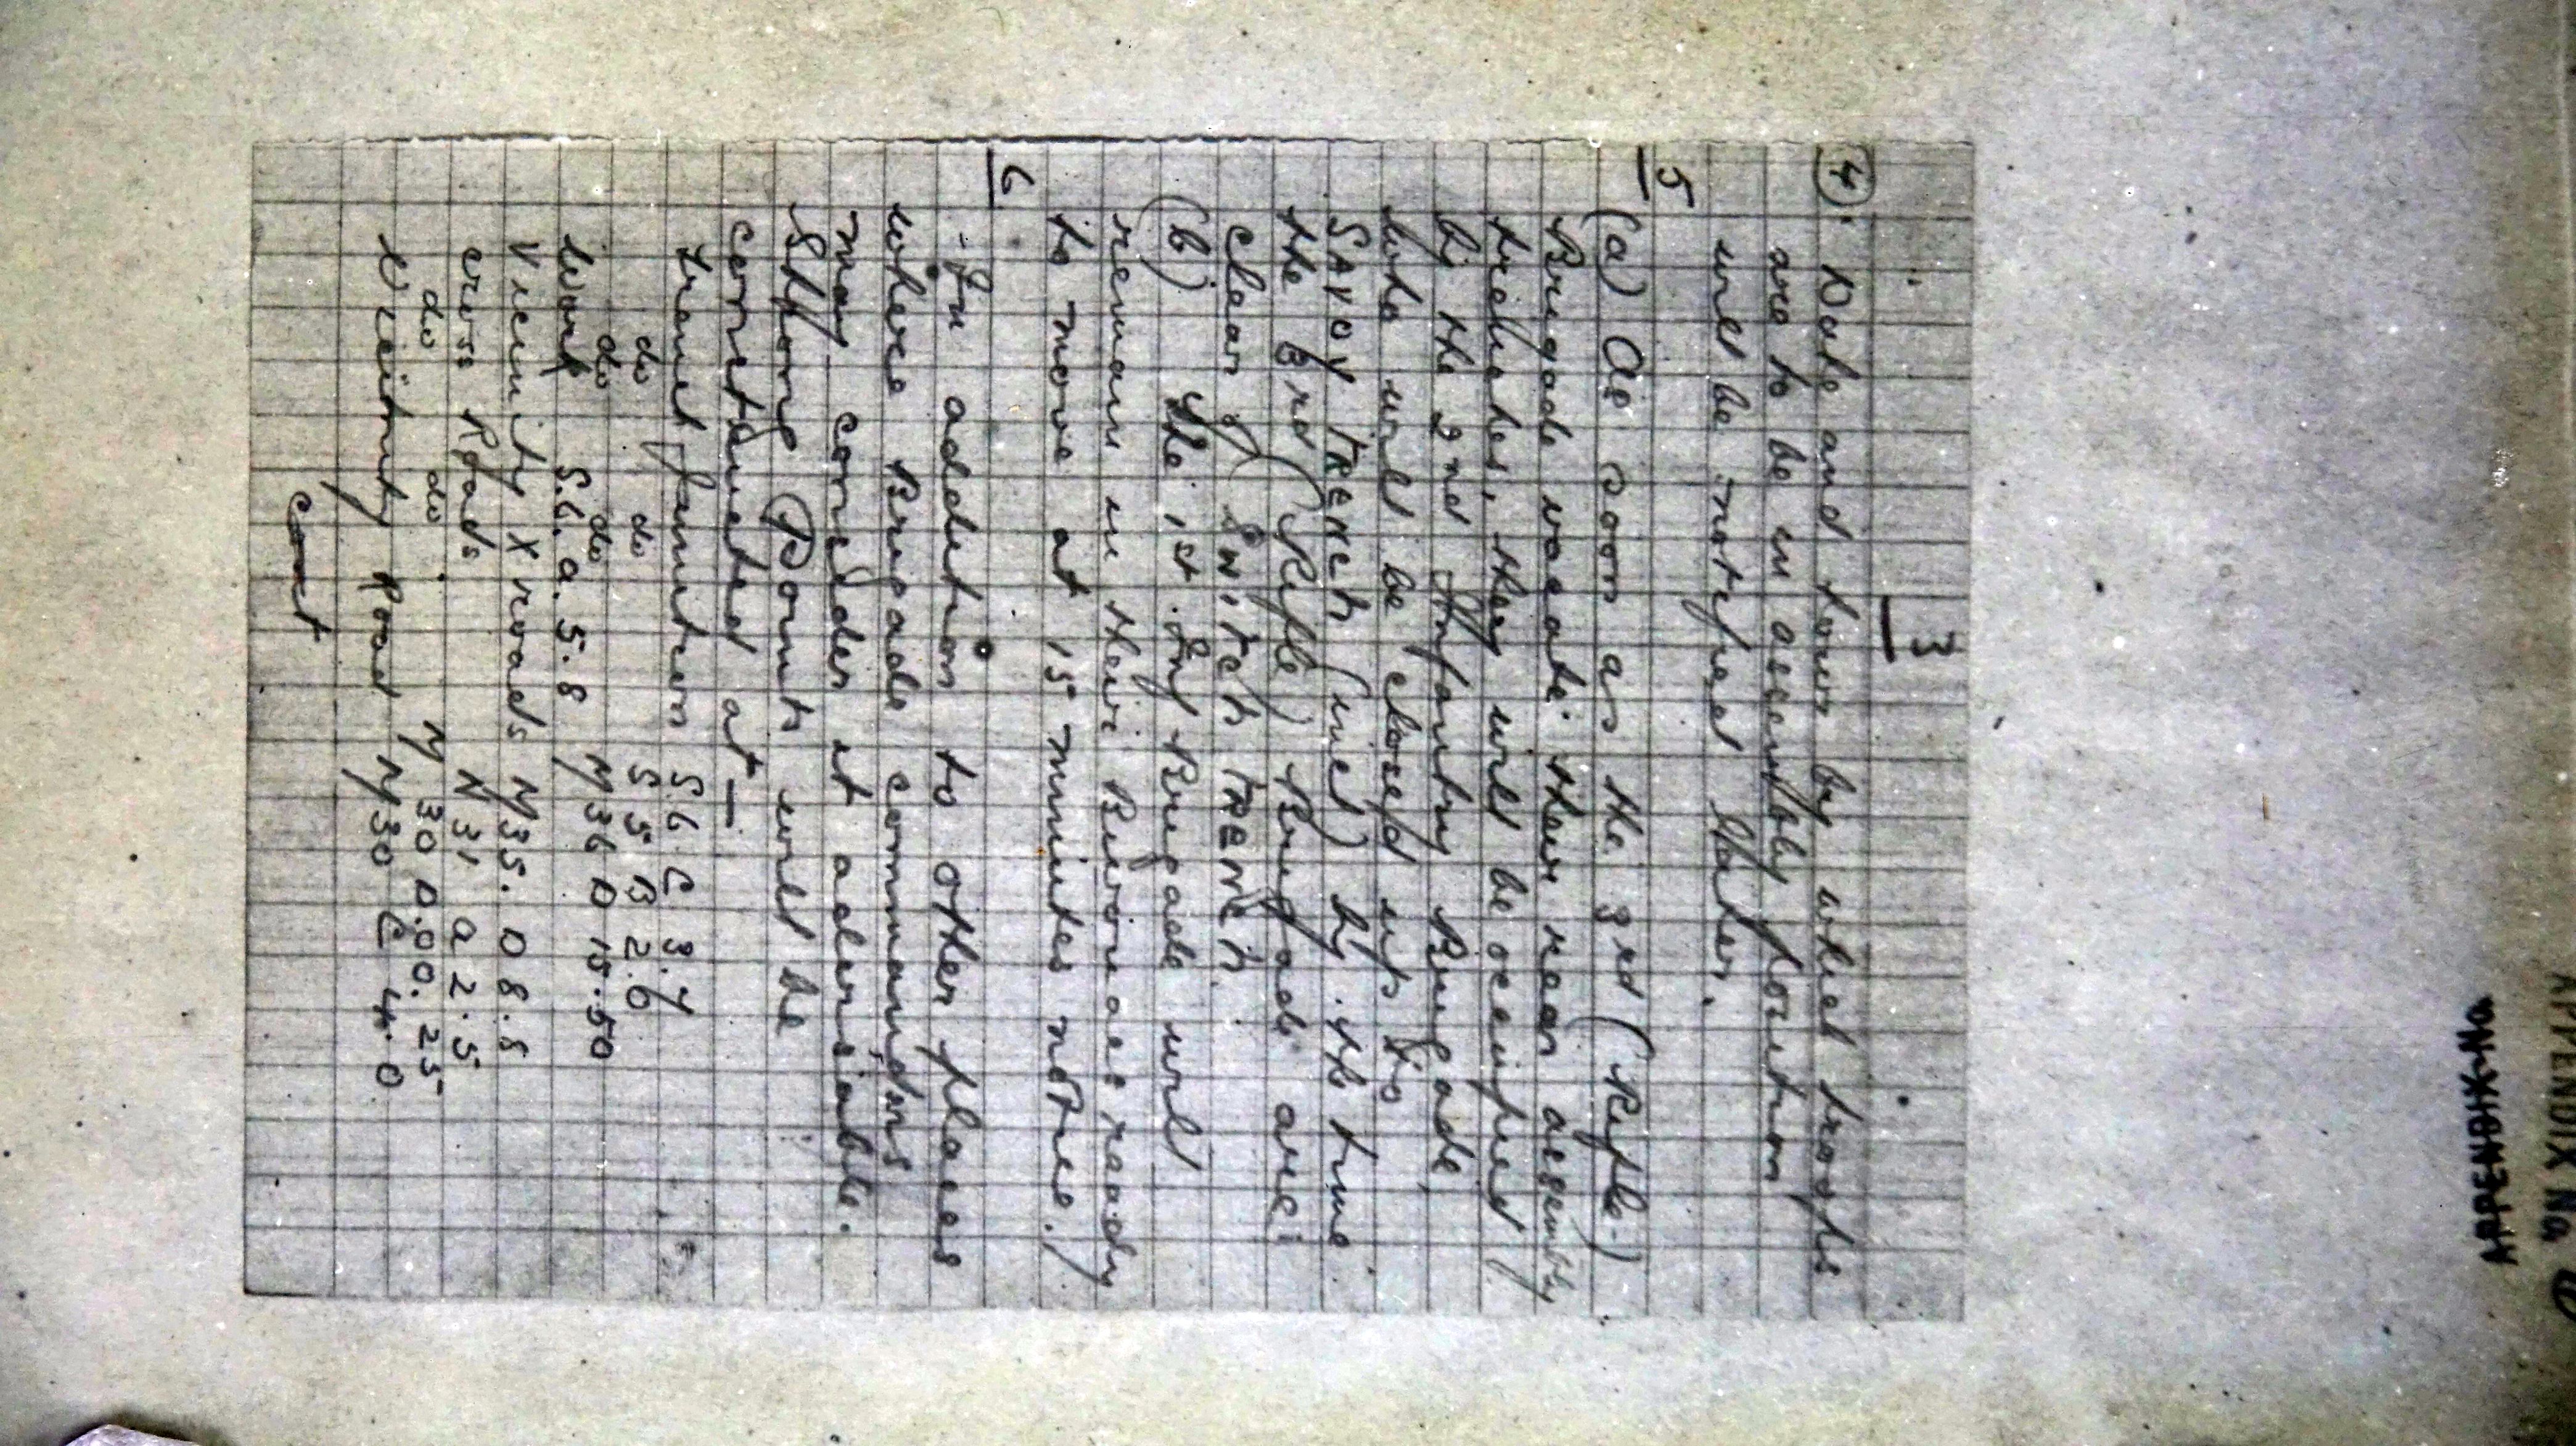 APPENDIX No
APPENDIX No
3
(4). Date and hour by which troops
are to be in assembly position
will be notified later.
5
(a) As soon as the 3rd (Rifle)
Brigade vacate their rear assembly
trenches, they will be occupied
by the 2nd Infantry Brigade,
who will be closed up to
SAVOY TRENCH (incl) by the time
the 3rd (Rifle) Brigade are
clear of SWITCH TRENCH
(b) The 1st Inf Brigade will
remain in their Bivouacs ready
to move at 15 minutes notice.)
6
In addition to other places
where Brigade commanders
may consider it advisable.
Strong Points will be
constructed at —
Trench junction S6. C 3.7
do do S 5 B 2.0
do do M 36 D 15.50
Work S.6. a. 5.8
Vicinity X roads M35. D 8.8
cross Roads N 31 a 2.5
do do M 30 D.00.25
Vicinity Road M30 C 4.0
cont